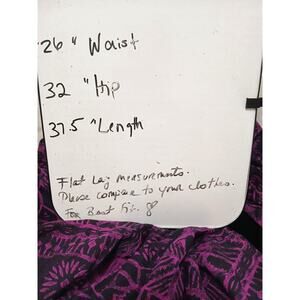 26" Waist
32 "Hip
37.5 "Length
Flat Lay measurements.
Please compare to your clothes.
For Best Fit.